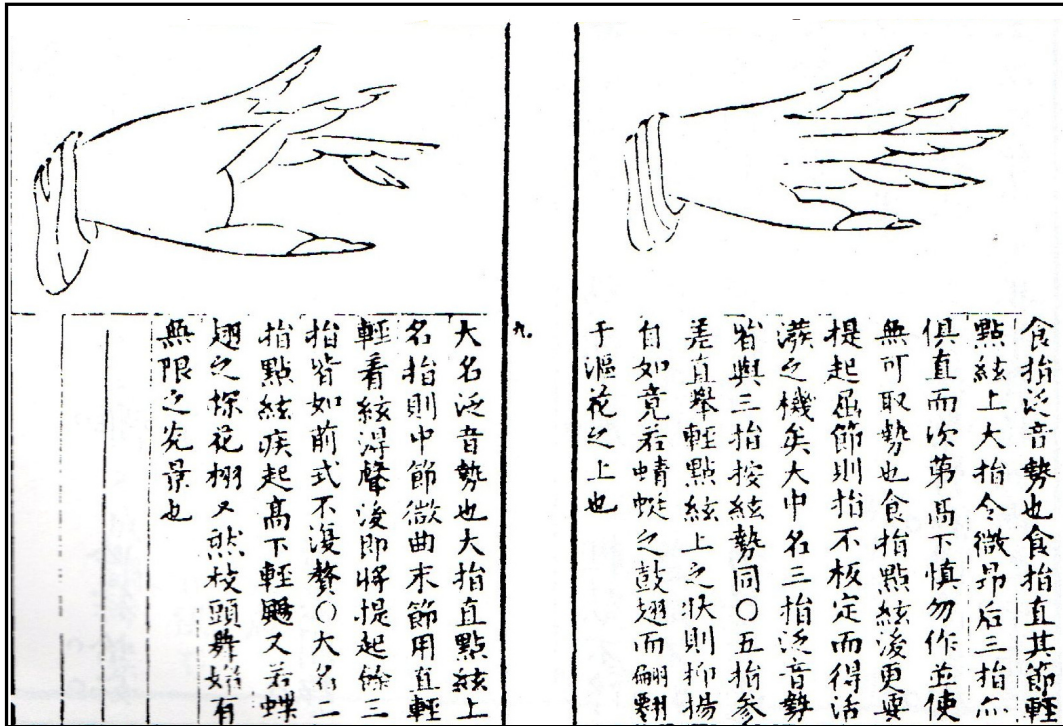 食指泛音勢也食指直其節輕
點絃上大指令微昻后三指尒
俱直而次第高下慎勿作並使
無可取勢也食指點絃後更要
提起屈節則指不板定而得活
潑之機矣大中名三指泛音勢
皆與三指按絃勢同〇五指参
差直舉輕點絃上之状則抑揚
自如竟若蜻蜓之鼓翅而翩翾
于漚花之上也
九
大名泛音勢也大指直點絃上
名指則中節微曲末節用直輕
輕看絃得聲後即將提起餘三
指皆如前式不復贅〇大名二
指點絃疾起高下輕飃又若蝶
翅之探花栩又然枝頭舞𡜍有
無限之光景也